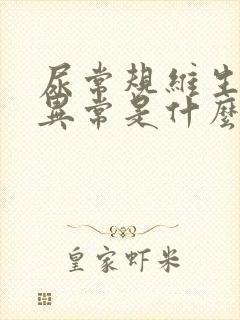 尿常規維生
異常是什麼
皇家虾米